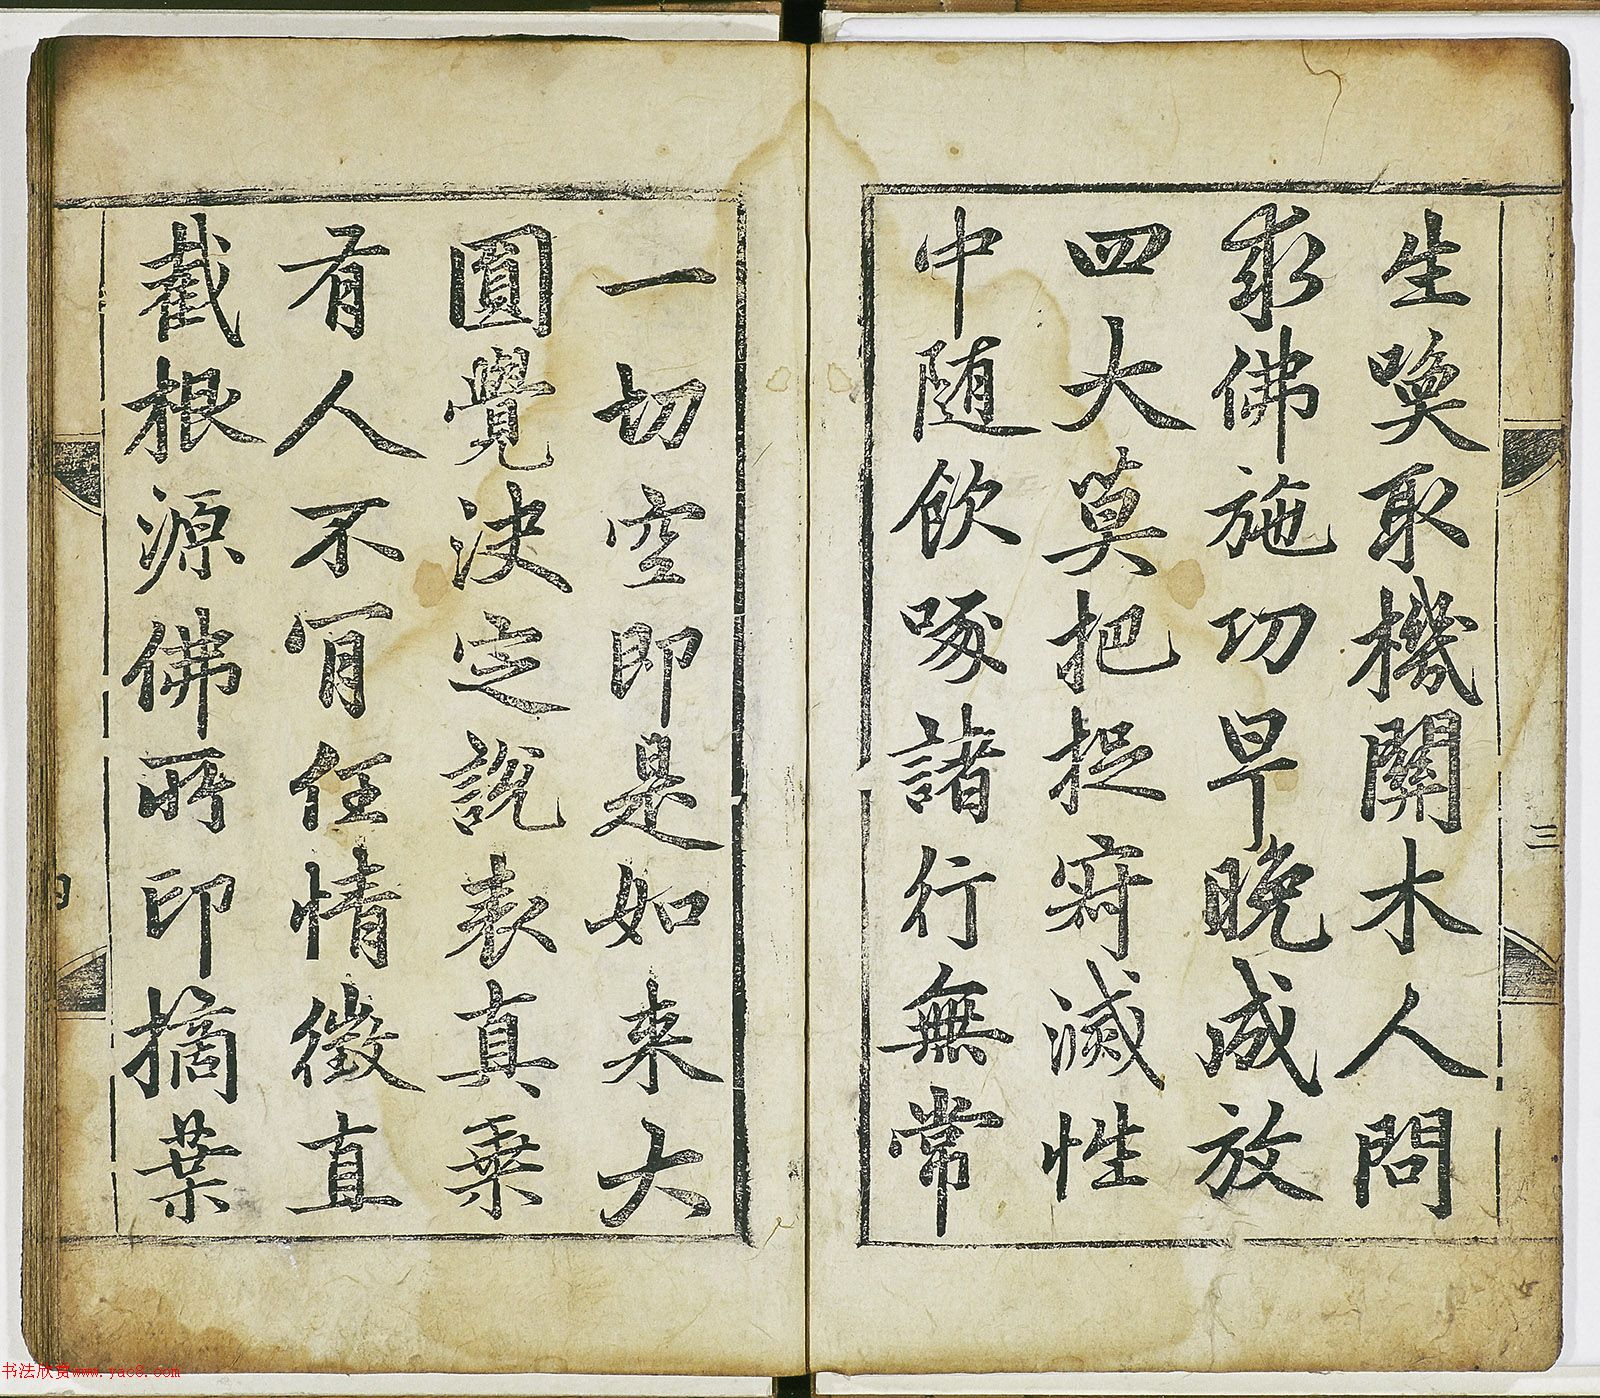 生喚取機關木人問
求佛施功早晚成放
四大莫把捉寂滅性
中随飲啄諸行無常
三
一切空即是如来大
圓覺決定說表真乗
有人不肎任情徵直
截根源佛所印摘葉
书法欣赏www.yac8.com